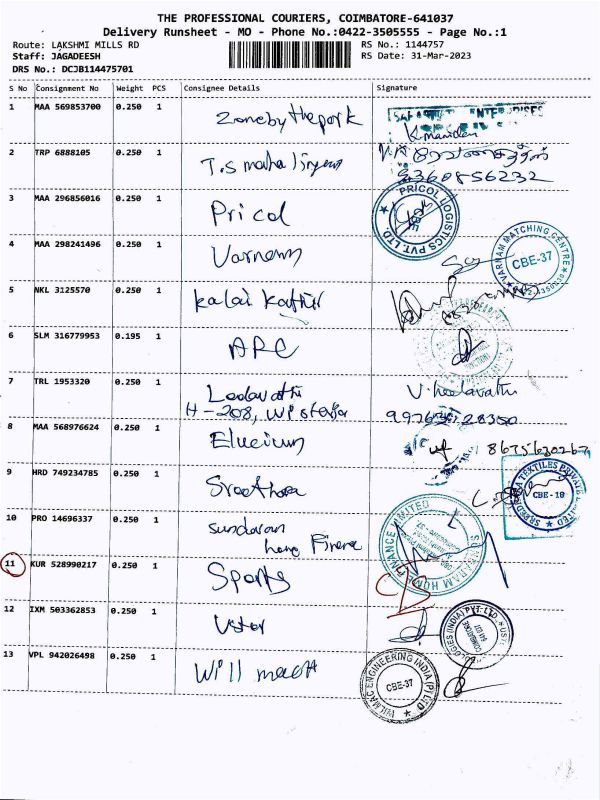 THE PROFESSIONAL COURIERS, COIMBATORE-641037
Delivery Runsheet - MO - Phone No.:0422-3505555 - Page No.:1
Route: LAKSHMI MILLS RD
RS No.: 1144757
Staff: JAGADEESH
RS Date: 31-Mar-2023
DRS No.: DCJB114475701
S No Consignment No Weight PCS Consignee Details Signature
1 MAA 569853700 0.250 1 Zonebythepark
ENTERPRISES
2 TRP 6888105 0.250 1 T.S mahalingam
9360856232
3 MAA 296856016 0.250 1 Pricol
PRICOL LOGISTICS PVT. LTD. CBE
4 MAA 298241496 0.250 1 Varnam
VARNAM MATCHING CENTRE CBE-37
5 NKL 3125570 0.250 1 kalai kathir
6 SLM 316779953 0.195 1 ARC
7 TRL 1953320 0.250 1 Leelavathi
H-208,
V. Leelavathi
8 MAA 568976624 0.250 1
8675630267
9 HRD 749234785 0.250 1 Sreethara
TEXTILES PRIVATE CBE-18
10 PRO 14696337 0.250 1 sundaram
home Finance
SUNDARAM HOME FINANCE LIMITED
11 KUR 528990217 0.250 1 Sports
12 IXM 503362853 0.250 1 Uster
USTER TECHNOLOGIES (INDIA) PVT. LTD. COIMBATORE 641 037
13 VPL 942026498 0.250 1 Will mact
WILMAC ENGINEERING INDIA (P) LTD CBE-37